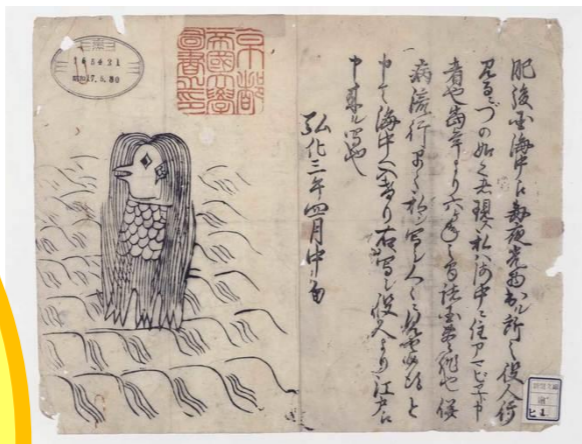 肥後国海中江毎夜光物出ル所之役人行
見るニづの如く者現ス私ハ海中ニ住アマビヱト申
者也当年より六ヶ年之間諸国豊作也併
病流行早々私ヲ写シ人々ニ見せ候得と
申て海中へ入けり右写シ役人より江戸江
申来ル写也
弘化三年四月中旬
京都
帝國大學
圖書之印